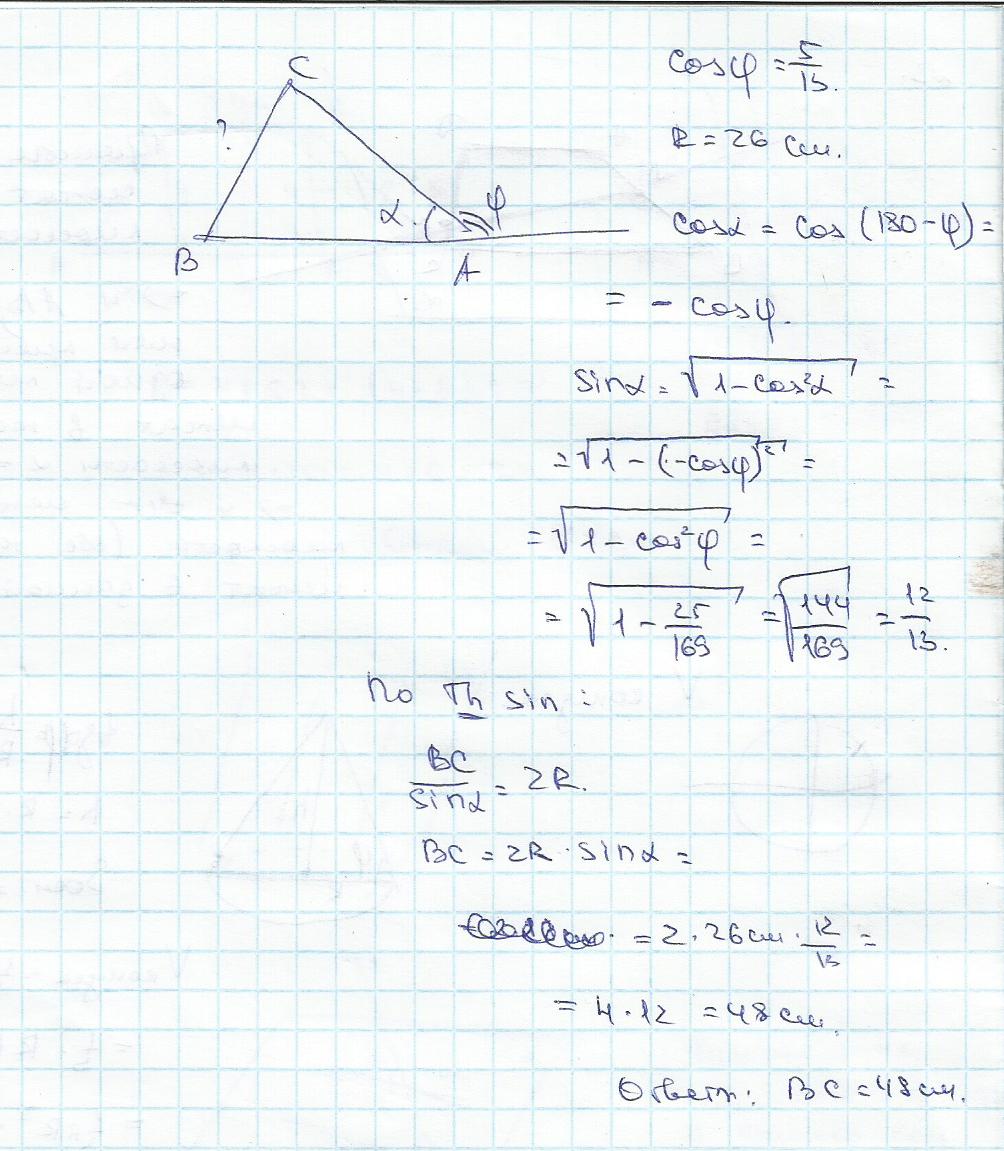 C
?
α
φ
B
A
cosφ = 5/13.
R = 26 см.
cosα = cos (180 - φ) =
= - cosφ.
sinα = √(1 - cos²α) =
= √(1 - (-cosφ)²) =
= √(1 - cos²φ) =
= √(1 - 25/169) = √(144/169) = 12/13.
По Th sin:
BC/sinα = 2R.
BC = 2R · sinα =
= 2 · 26 см · 12/13 =
= 4 · 12 = 48 см.
Ответ: BC = 48 см.